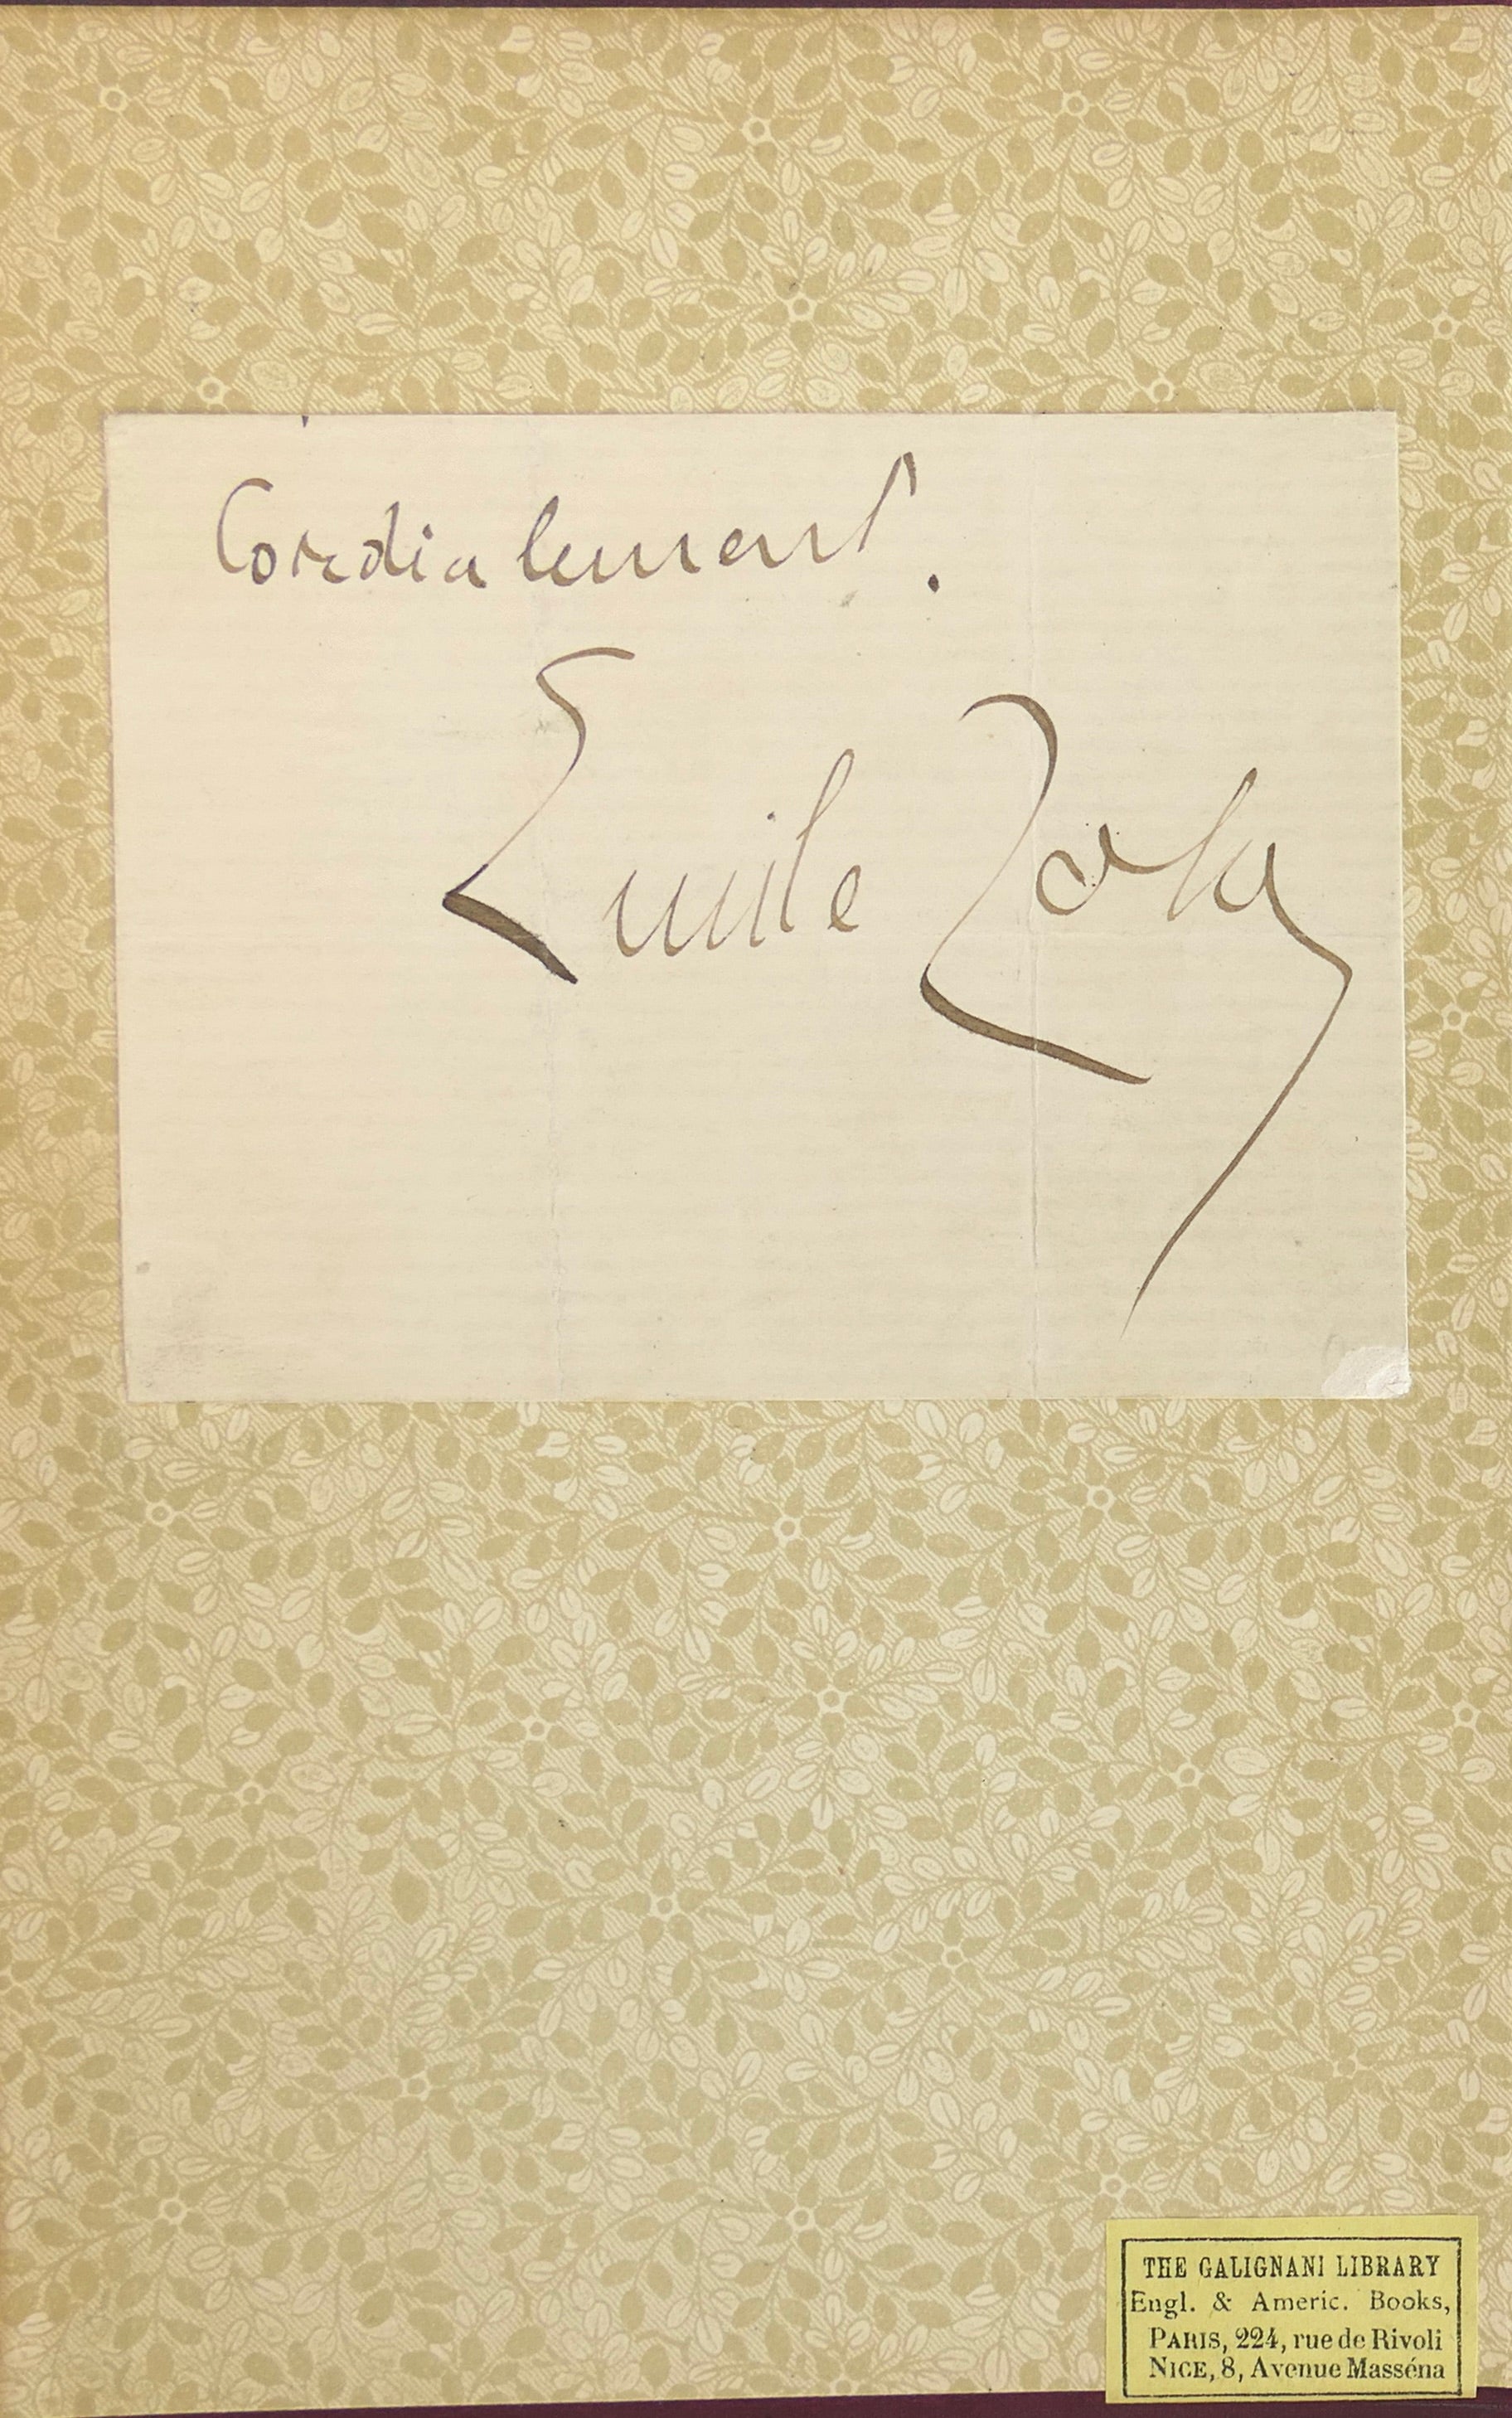 Cordialement.
Emile Zola
THE GALIGNANI LIBRARY
Engl. & Americ. Books,
PARIS, 224, rue de Rivoli
NICE, 8, Avenue Masséna